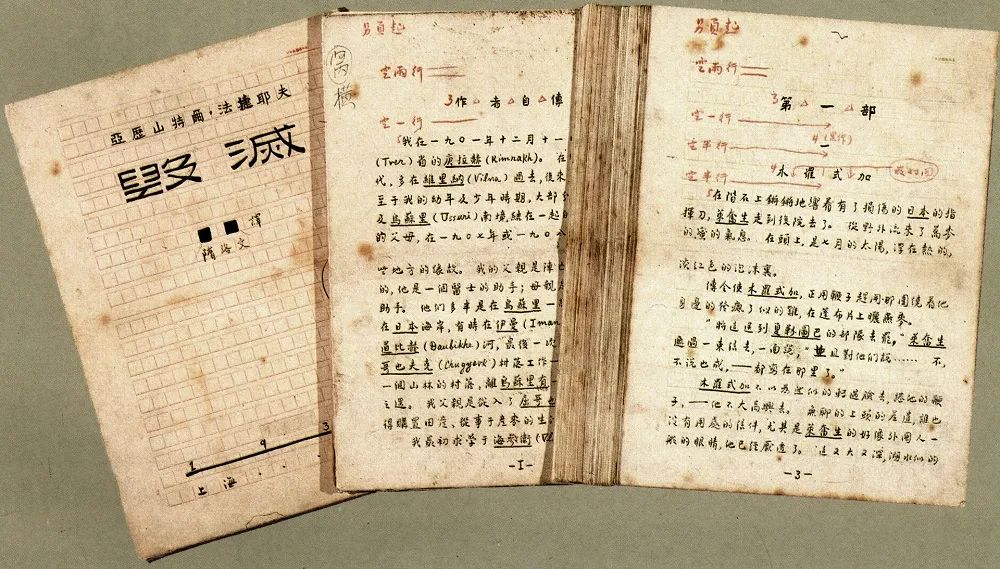 亞歷山特爾,法捷耶夫
毀滅
■■ 譯
隋洛文
1 9 3
上海
另頁起
空兩行
3作△者△自△傳
空一行
我在一九〇一年十二月十一
(Tver)省的庚拉赫(Kimrakh)。在
代,多在維里納(Vilna)過去,後來
至于我的幼年及少年時期,大部分
及烏蘇里(Ussuri)南境,結在一起
的父母,在一九〇七年或一九〇八
些地方的緣故。我的父親是陣亡
的,他是一個醫士的助手;母親
助手。他們多半是在烏蘇里一
在日本海岸,有時在伊曼(Iman
道比赫(Daubikhe)河,最後一次
哥也夫克(Chuguevk)村落工作一
一個山林的村落,離烏蘇里有一
之遙。我父親是從入了屈哥也
得購置田产,從事于产麥的生
我最初求學于海參衛(Vl
-I-
另頁起
空兩行
3第△一△部
空一行
4(黑体)
一
空半行
4木 羅 式 加
空半行
5在階石上鏘鏘地響着有了損傷的日本的指
揮刀,萊奮生走到後院去了。從野外流來了蕎麥
的蜜的氣息。在頭上,是七月的太陽,浮在熱的,
淡紅色的泡沫裏。
傳令使木羅式加,正用鞭子趕開那圍繞着他
身邊的發瘋了似的雞,在篷布片上曬燕麥。
"將這送到夏勒圖巴的部隊去罷,"萊奮生
遞過一束信去,一面說,"並且對他們說…… 不,
不說也成,——都寫在那里了。"
木羅式加不以為然似的轉過臉去,捲他的鞭
子,——他不大高興去。無聊的上頭的差遣,誰也
沒有用處的信件,尤其是萊奮生的好像外國人一
般的眼睛,他已經厭透了。這又大又深,湖水似的
-3-